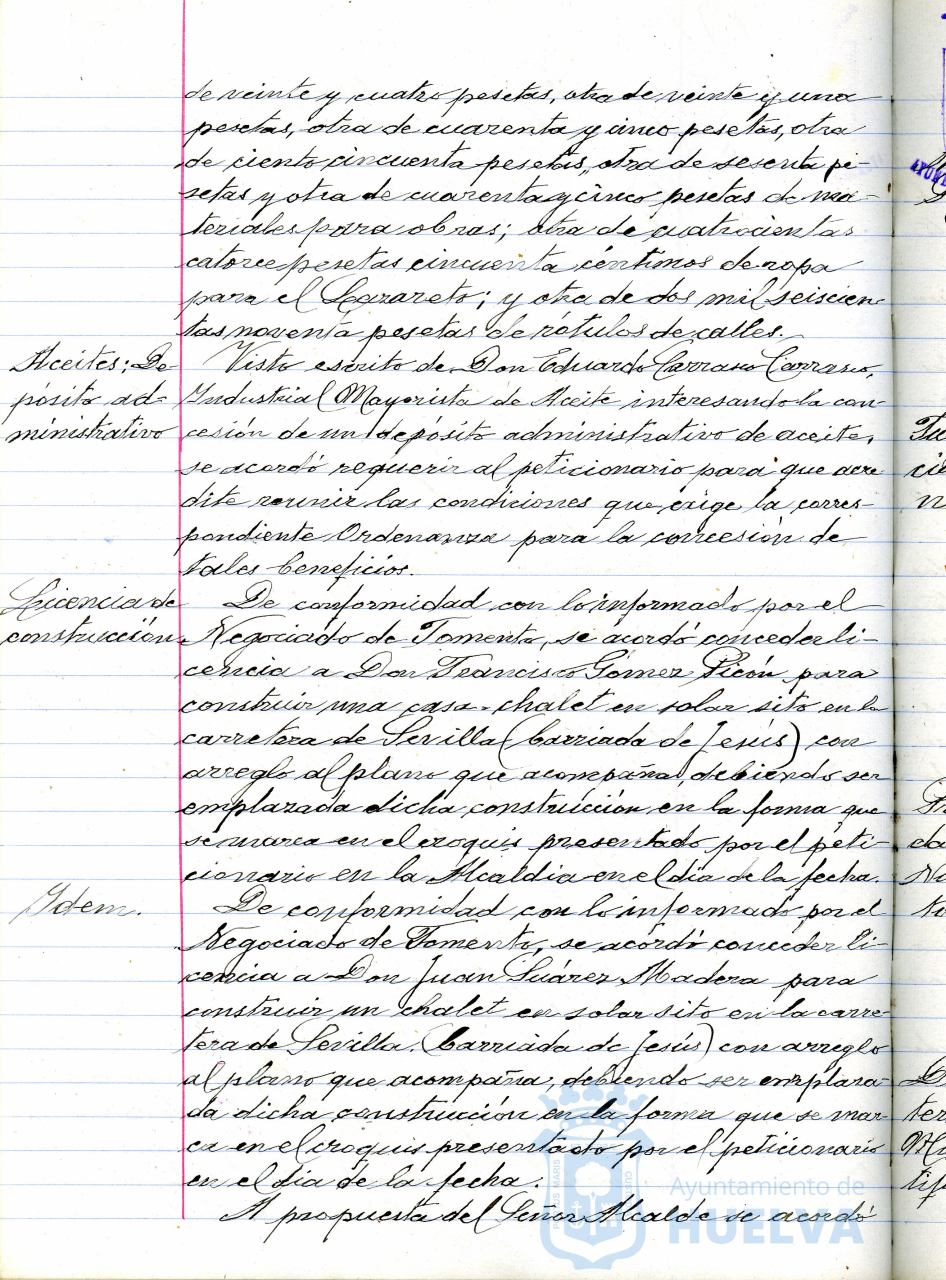 de veinte y cuatro pesetas, otra de veinte y una
pesetas, otra de cuarenta y cinco pesetas, otra
de ciento cincuenta pesetas, otra de sesenta pe-
setas y otra de cuarenta y cinco pesetas de ma-
teriales para obras; otra de cuatrocientas
catorce pesetas cincuenta céntimos de ropa
para el Lazareto; y otra de dos mil seiscien-
tas noventa pesetas de rótulos de calles.
Aceites: De-
pósito ad-
ministrativo
Visto escrito de Don Eduardo Carrasco Carrasco,
Industrial Mayorista de Aceite interesando la con-
cesión de un depósito administrativo de aceite,
se acordó requerir al peticionario para que acre
dite reunir las condiciones que exige la corres-
pondiente Ordenanza para la concesión de
tales beneficios.
Licencia de
construcción.
De conformidad con lo informado por el
Negociado de Fomento, se acordó conceder li-
cencia a Don Francisco Gómez Picón para
construir una casa-chalet en solar sito en la
carretera de Sevilla (barriada de Jesús) con
arreglo al plano que acompaña, debiendo ser
emplazada dicha construcción en la forma que
se marca en el croquis presentado por el peti-
cionario en la Alcaldia en el dia de la fecha.
Idem.
De conformidad con lo informado por el
Negociado de Fomento, se acordó conceder li-
cencia a Don Juan Suárez Madera para
construir un chalet en solar sito en la carre-
tera de Sevilla. (barriada de Jesús) con arreglo
al plano que acompaña, debiendo ser emplaza-
da dicha construcción en la forma que se mar-
ca en el croquis presentado por el peticionario
en el dia de la fecha.
A propuesta del Señor Alcalde se acordó
Ayuntamiento de
HUELVA